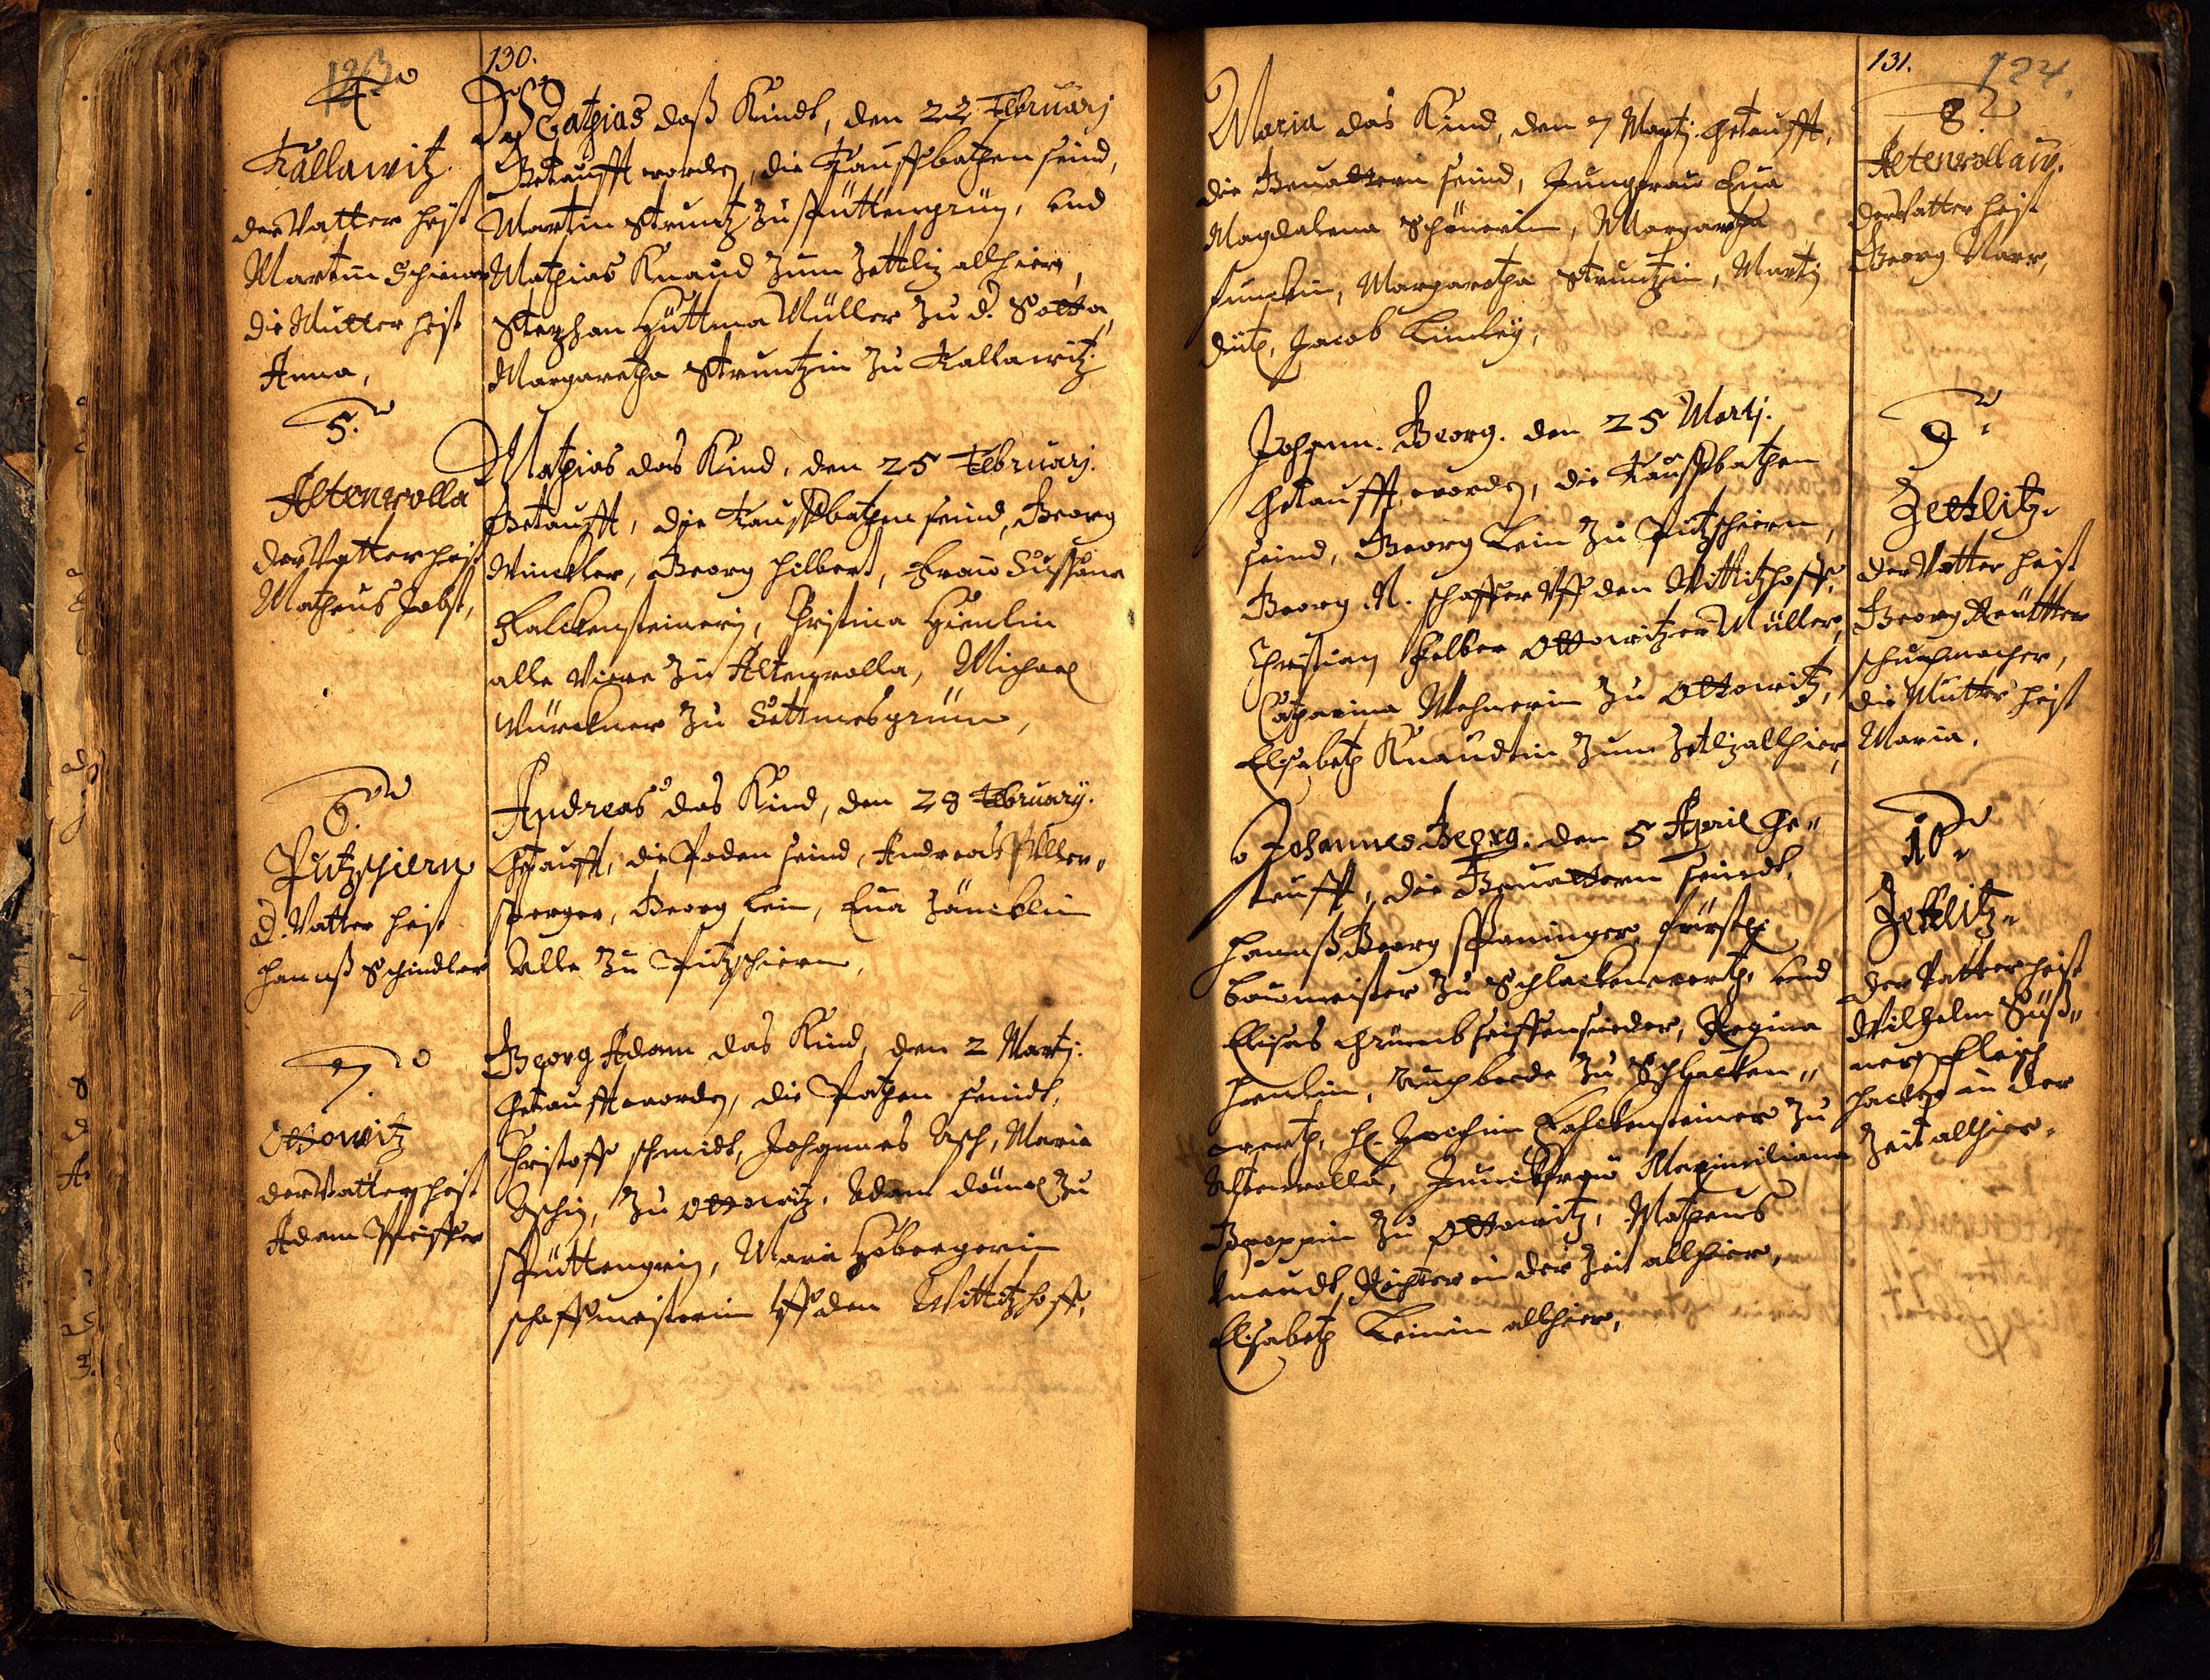 123
130.
4.
Kallawitz
der Vatter heist
Martin Schiener
die Mutter heist
Anna,
Mathias daß Kindt, den 22 Februarj
Getaufft worden, die Tauffbathen seind,
Martin Struntz zu Püttengrün, und
Mathias Knaud zum Zettliz allhiero,
Stephan Hüttma Müller zu d. Sotta,
Margaretha Struntzin zu Kallawitz.
5.
Altenrolla
der Vatter heist
Matheus Jobst,
Mathias das Kind, den 25 Februarj.
Getaufft, die Tauffbathen seind, Georg
Winckler, Georg Hilbert, Frau Sussana
Falckensteinerin, Christina Hienlin
alle Viere zu Altenrolla, Michael
Würckner zu Settmesgrün,
6.
Putzschiern
d. Vatter heist
Hannß Schindler
Andreas das Kind, den 28 February.
Getaufft, die Poden seind, Andreas Pller„
sperger, Georg Lein, Eua Zäncklin
Alle zu Putzschiern,
7.
Ottowitz
der Vatter heist
Adam Pfeiffer
Georg Adam das Kind, den 2 Martj.
Getaufft worden, die Pathen seindt,
Christoff Schmidt, Johannes Asch, Maria
Aschin, zu Ottowitz, Adam Dömel zu
Püttengrün, Maria Höbergerin
schaffmeisterin uff den Wittitzhoff,
131.
124.
Maria das Kind, den 7 Martj. Getaufft,
die Gevattern seind, Jungfrau Eua
Magdalena Schönerin, Margaretha
Funckin, Margaretha Struntzin, Martj
Jacob Linckh,
8.
Altenrollau.
der Vatter heist
Georg Narr,
Johann. Georg. den 25 Martj.
Getaufft worden, die Tauffbathen
seind, Georg Lein zu Putzschiern,
Georg N. schaffer uff den Wittitzhoff,
Christian Felber Ottowitzer Müller,
Catharina Wehnerin zu Ottowitz,
Elisabeth Knaudtin zum Zetliz allhier,
9.
Zettlitz.
der Vatter heist
Georg Reütter
schuchmacher,
die Mutter heist
Maria.
Johannes Georg. den 5 April Ge„
taufft, die Gevattern seindt,
Hannß Georg Spaninger, Fürstl:
baumeister zu Schlackenwerth, und
Elisas seiffensieder, Regina
Hienlin, Auch beede zu Schlacken„
werth, H. Joachim Falckensteiner zu
Altenrolla, Junckfrau Maximiliana
zu Ottowitz, Matheus
Knaudt, Richter in der Zeit allhier,
Elisabeth Leinin allhier,
10.
Zettlitz.
der Vatter heist
Wilhelm Süß„
ner Fleisch
hacker in der
Zeit allhier.